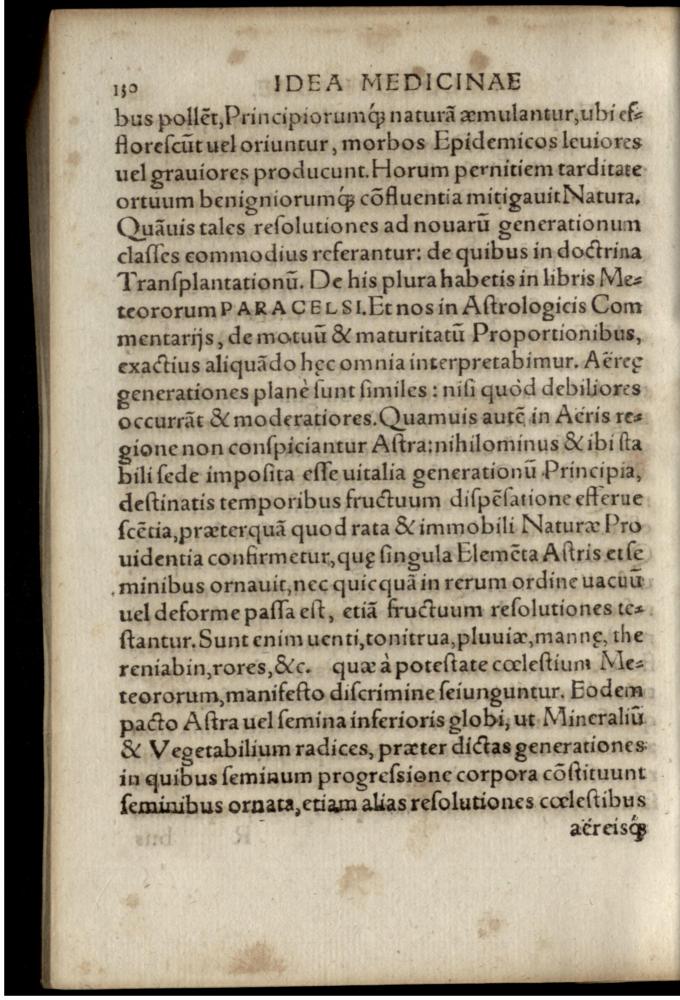 130 IDEA MEDICINAE
bus pollēt,Principiorumq́; naturā æmulantur,ubi ef⸗
floreſcūt uel oriuntur, morbos Epidemicos leuiores
uel grauiores producunt.Horum pernitiem tarditate
ortuum benigniorumq́; cōfluentia mitigauit Natura.
Quāuis tales reſolutiones ad nouarū generationum
claſſes commodius referantur: de quibus in doctrina
Tranſplantationū. De his plura habetis in libris Me⸗
teororum PARACELSI.Et nos in Aſtrologicis Com
mentarijs, de motuū & maturitatū Proportionibus,
exactius aliquādo hęc omnia interpretabimur. Aëreę
generationes planè ſunt ſimiles : niſi quòd debiliores
occurrāt & moderatiores.Quamuis autē in Aëris re⸗
gione non conſpiciantur Aſtra:nihilominus & ibi ſta
bili ſede impoſita eſſe uitalia generationū Principia,
deſtinatis temporibus fructuum diſpēſatione efferue
ſcētia,præterquā quod rata & immobili Naturæ Pro
uidentia confirmetur,quę ſingula Elemēta Aſtris et ſe
minibus ornauit,nec quicquā in rerum ordine uacuū
uel deforme paſſa eſt, etiā fructuum reſolutiones te⸗
ſtantur.Sunt enim uenti,tonitrua,pluuiæ,mannę, the
reniabin,rores,&c. quæ à poteſtate cœleſtium Me⸗
teororum,manifeſto diſcrimine ſeiunguntur. Eodem
pacto Aſtra uel ſemina inferioris globi, ut Mineraliū
& Vegetabilium radices, præter dictas generationes
in quibus ſeminum progreſsione corpora cōſtituunt
ſeminibus ornata,etiam alias reſolutiones cœleſtibus
aëreisq́;